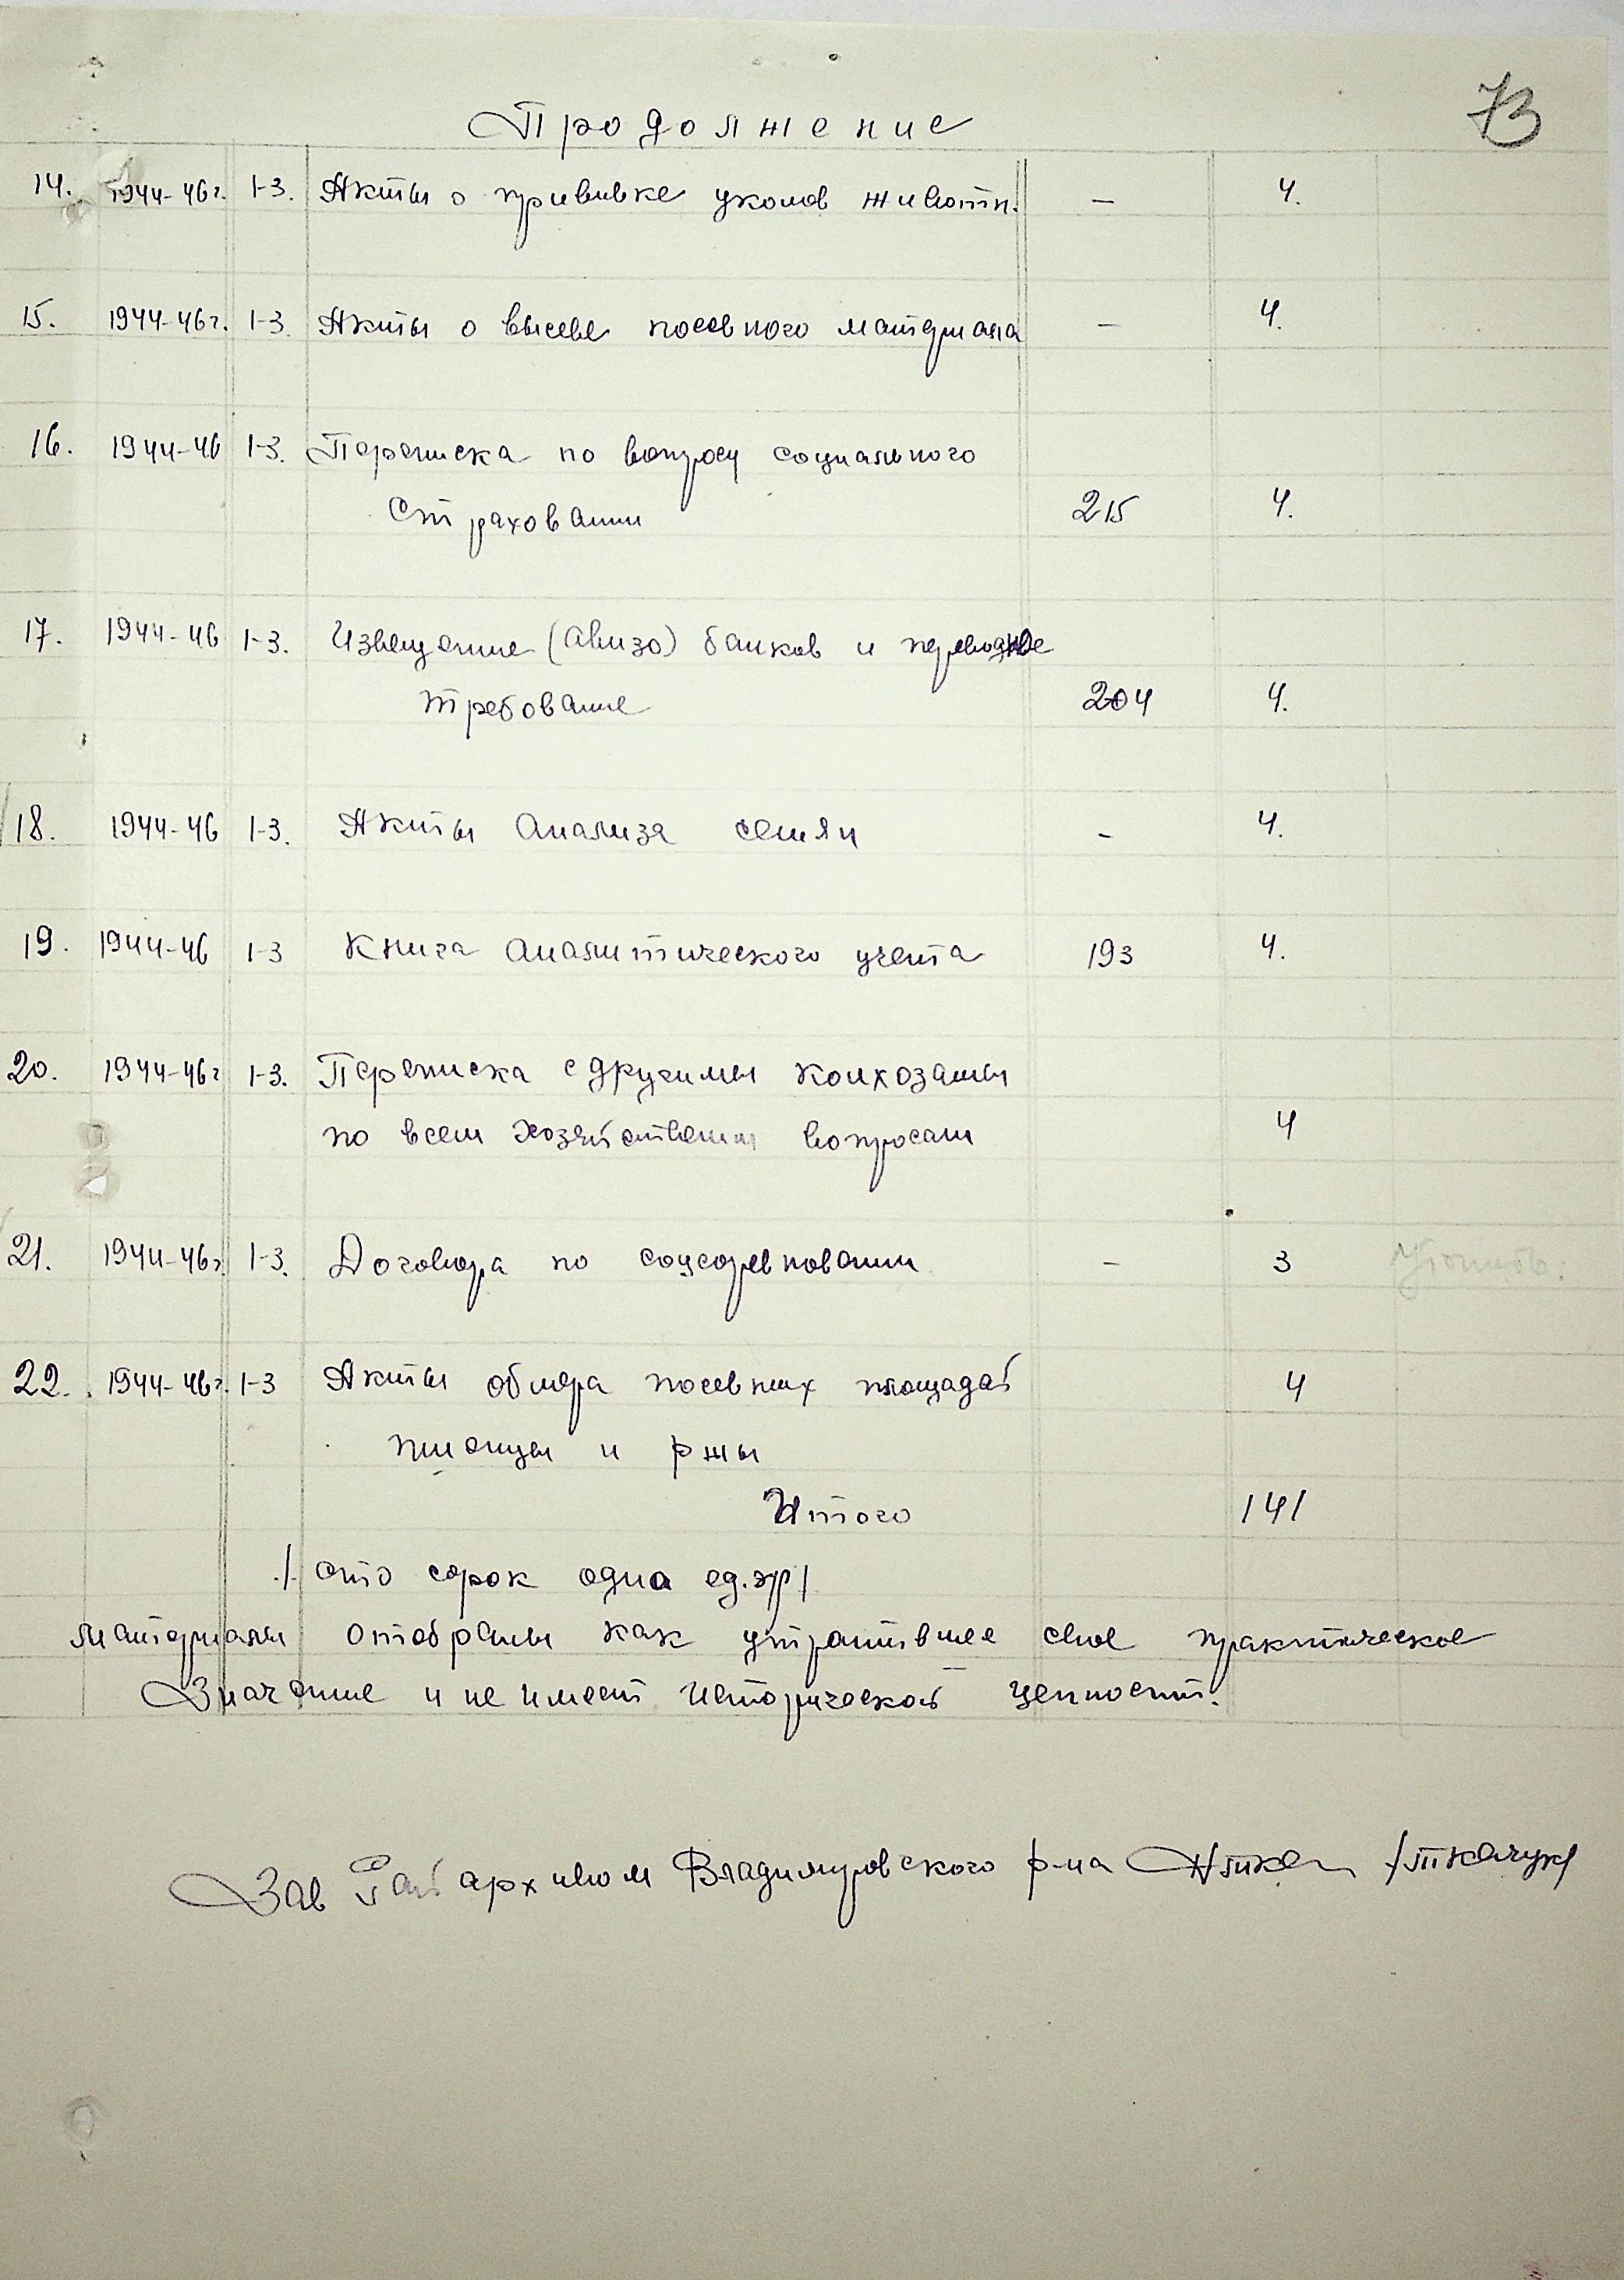 73
Продолжение
14. 1944-46г. 1-3. Акты о прививке уколов животн. — 4.
15. 1944-46г. 1-3. Акты о высеве посевного материала — 4.
16. 1944-46 1-3. Переписка по вопросу социального
страховании 215 4.
17. 1944-46 1-3. Извещение (авизо) банков и переводное
требование 204 4.
18. 1944-46 1-3. Акты анализа семян - 4.
19. 1944-46 1-3 Книга аналитического учета 193 4.
20. 1944-46г 1-3. Переписка с другимы колхозамы
по всем хозяйственым вопросам 4
21. 1944-46г. 1-3. Договора по соцсоревновании - 3
22. 1944-46г. 1-3 Акты обмера посевных площадей 4
пшеницы и ржы
Итого 141
/сто сорок одна ед.хр/
Материалы отобраны как утратившее свое практическое
значение и не имеет исторической ценност.
Зав Рай архивом Владимировского р-на /Ткачук/